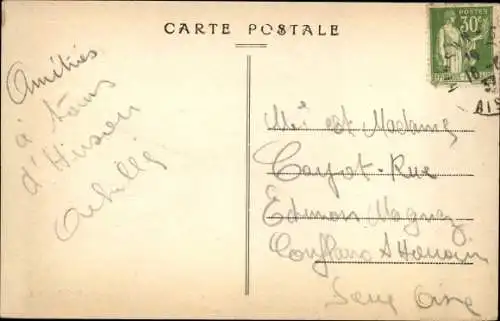 CARTE POSTALE
30c
POSTES
Amitiés
à tous
d'Hirson
Achille
Mr et Madame
Cayot Rue
Edmon Magnez
Conflans St Honorin
Seine Oise
AIS